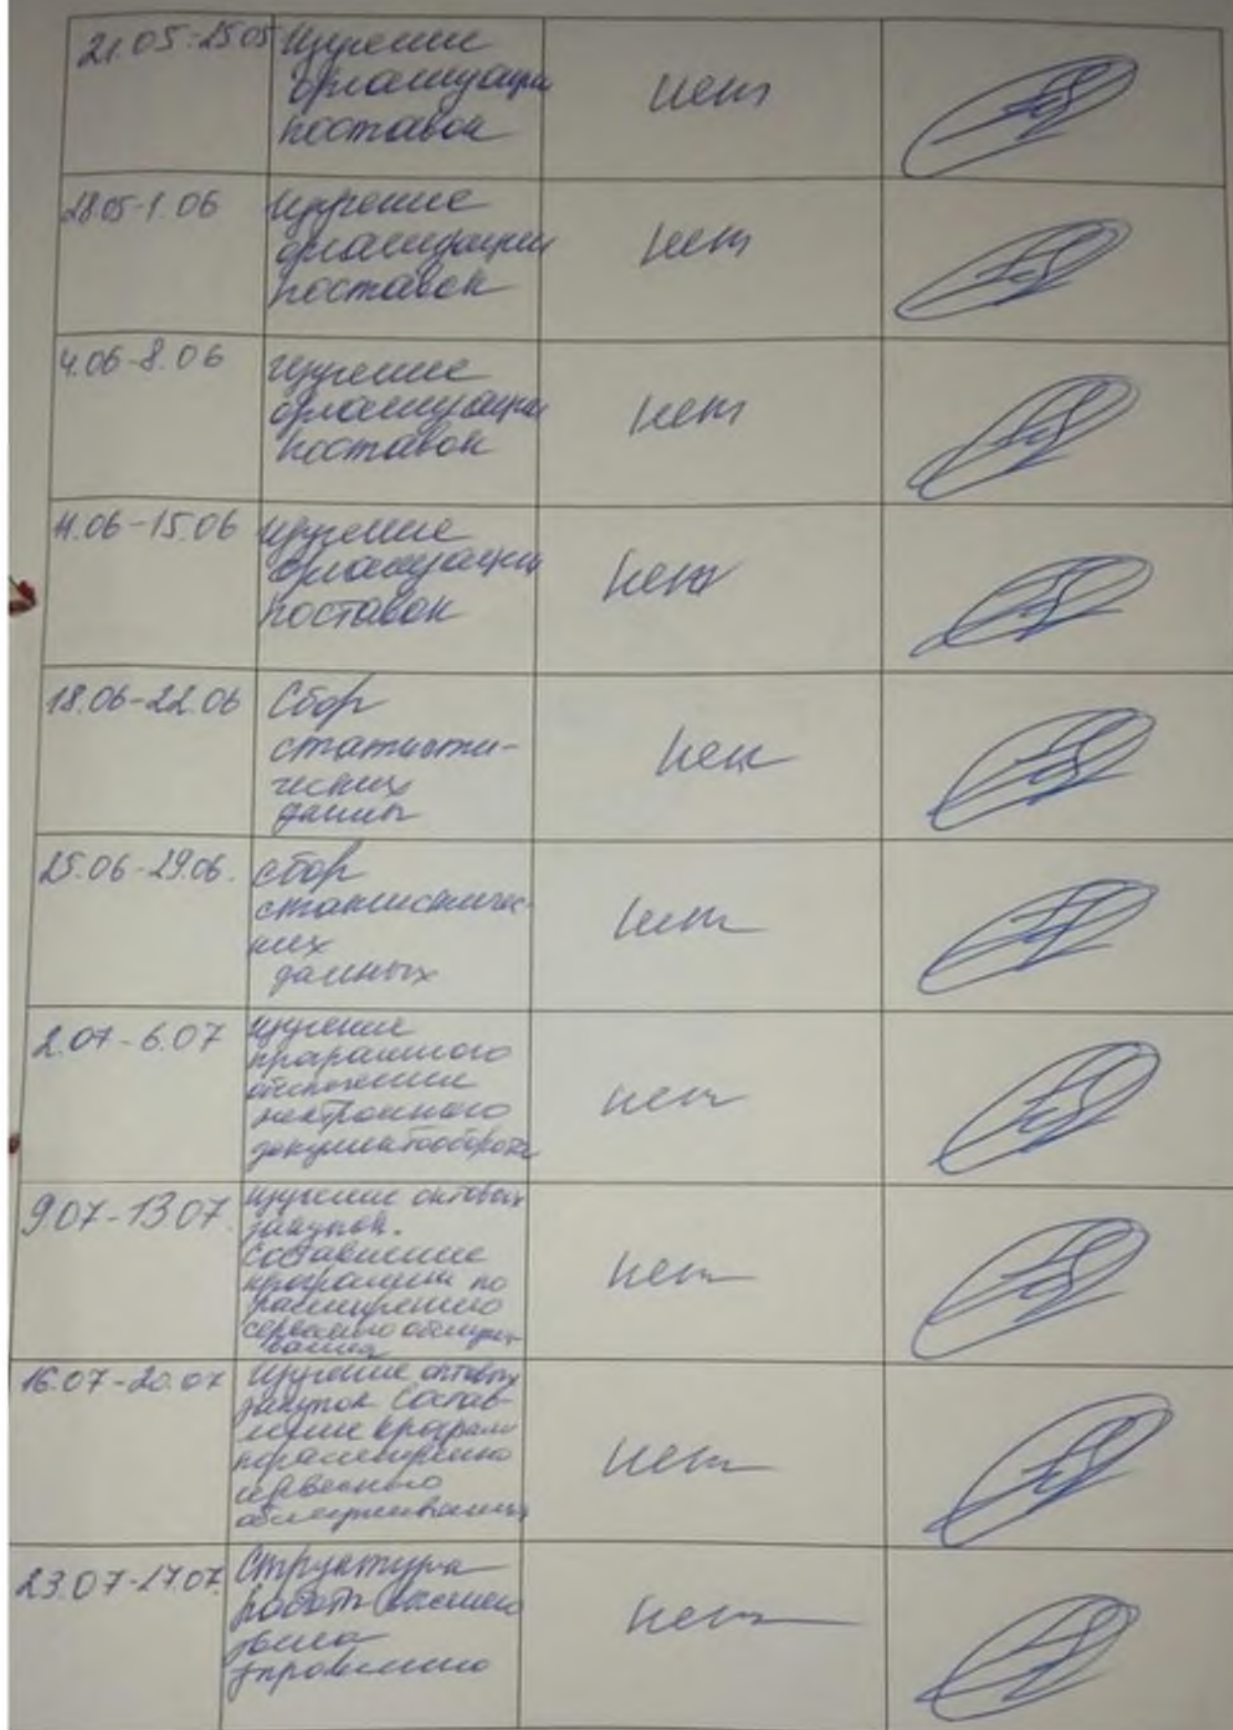 21.05-25.05 Изучение
организации
поставок
нет
28.05-1.06 Изучение
организации
поставок
нет
4.06-8.06 Изучение
организации
поставок
нет
11.06-15.06 Изучение
организации
поставок
нет
18.06-22.06 Сбор
статисти-
ческих
данных
нет
25.06-29.06. Сбор
статистичес-
ких
данных
нет
2.07-6.07 Изучение
программного
обеспечения
электронного
документооборота
нет
9.07-13.07. Изучение оптовых
закупок.
Составление
программы по
расширению
сервисного обслужи-
вания
нет
16.07-20.07 Изучение оптовых
закупок. Состав-
ление программ
по расширению
сервисного
обслуживания
нет
23.07-27.07. Структура
работы высшего
звена
управления
нет